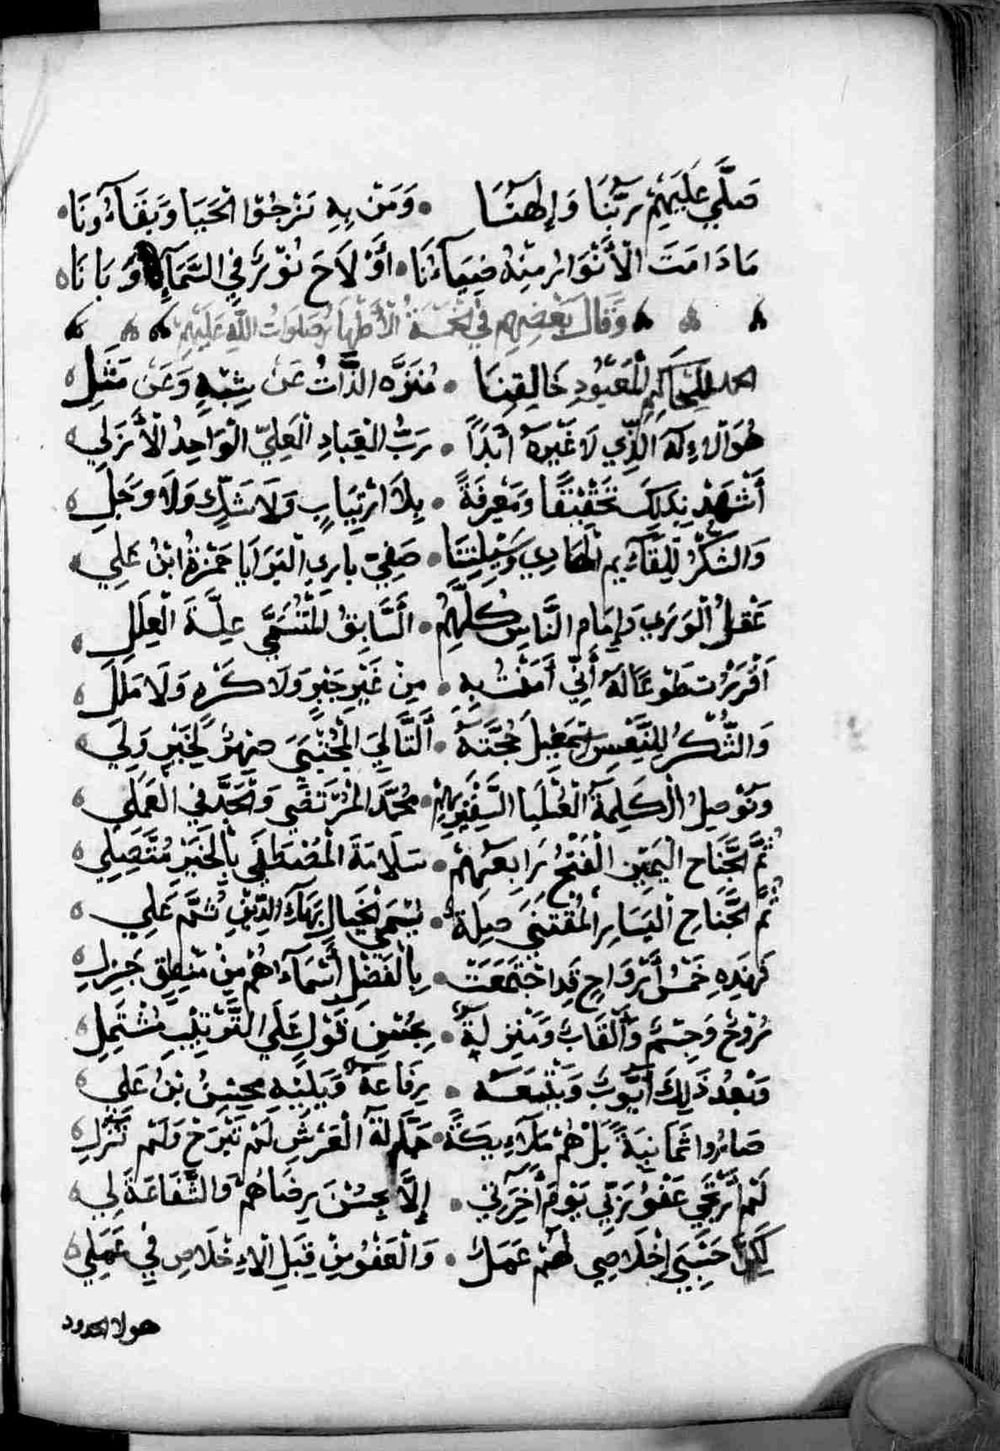 صَلَّي عَلَيهِمْ رَبُّنَا وَإِلٰهُنَا • وَمَنْ بِهِ نَرْجُوْا الْحَيَا وَبَقَآءُونَا
مَا دَامَتَ الْأَنْوَارُ مِنْهُ ضِيَآءُنَا • أَوْ لَاحَ نُوْرٌ فِي السَّمَآءِ وَبَانَا
وَقَالَ بَعْضِهِم فِي الخَمْسَةُ الْأَطْهَارِ صَلَوَاتُ اللَّهِ عَلَيْهِمْ
الحمد للحَاكِمِ الْمَعْبُودِ خَالِقِنَا • مُنَزَّه الذَّاتُ عَن شِبْهٍ وَعَن مَثَلِ
هُوَ الْإِلَهُ الَّذِي لَا غَيْرَهُ أبَدًا • رَبُّ الْعِبَادِ الْعَلِيِّ الْوَاحِدُ الْأَزَلِي
أَشْهَدْ بِذَلِكَ تَحْقِيْقًا وَمَعْرِفَةً • بِلَا ارْتِيَابٍ وَلَا شَكٍّ وَلَا وَجَلِ
وَالشُكْرُ لِلقَآئِمِ الْهَادِي وَسِيْلَتِنَا • صَفِيّ بارِي البَرَايَا حَمْزَةُ ابْنُ عَلِي
عَقْلُ الْوَرَي وَإِمَام النَّاسِ كُلِّهِمُ • السَّابِقُ الْمُتَسَمَّي عِلَّةَ الْعِلَلِ
أَقْرَرْتُ طَوْعًا لَهُ أَنِّي أَمَنْتُ بِهِ • مِن غَيْرِ جَبْرٍ وَلَا كَرْهٍ وَلَا مَلَلَ
وَالشُّكْرُ لِلنَّفْسِ إسْمَعِيلَ حُجَّتَهُ • التَّالِيَ الْمُجْتَبَى صِهْرٌ لِخَيْرِ وَلِي
وَنَوْصِلُ الْكَلِمَةَ الْعُلْيَا السَّفِيْرَ بِهِمْ • مُحَمَّدَ الْمُرْتَضَي وَنَجِدَّ فِي الْعَمَلِي
ثُمَّ الْجَنَاح الْيَمِيْنِ الْفَتْحُ رَابِعَهُمْ • سَلَامَةَ الْمُصْطَفَي بِالْخَيْرِ مُتَّصِلِي
ثُمَّ الْجَنَاحِ الْيَسَارِ الْمُقْتَنَي صِلَةٌ • يُسْمَي الْخَيَالِ بَهَآءَ الدِّيْنِ ثُمَّ عَلِي
فَهَذِهِ خَمْسُ أَرْوَاحٍ قَدِ اجْتَمَعَتْ • بِالْفَضْلِ أَسْمَآءُهُمْ مِنْ مَنْطِقٍ جَزِلِ
رُوْحٌ وَجِسْمٌ وَأَلْقَابٌ وَمَنْزِلَةٌ • بِحُسْنِ قَوْلٍ عَلَي التَّرْتِيْبِ مُشْتَمِلِ
وَبَعْدُ ذَلِكَ أَيُّوْبٌ وَيَتْبَعَهُ • رِفَاعَةٌ وَيَلِيْهِ مُحْسِنُ بْنُ عَلِي
صَارُوا ثَمَانِيَةً بَلْ هُمْ مَلَآئِيكَةٌ • حَمَلَةَ الْعَرْشِ لَمْ تَبْرَحْ وَلَمْ تَزَلِ
لَمْ أَرْتَجِي عَفْوُ رَبِّي يَوْمَ أَخَرَنِي • إِلَّا بِحُسْنِ رِضَاهُمْ وَالشَّفَاعَةَ لِي
لَكِنَّ حَسْبِيَ إِخْلَاصِي لَهُمْ عَمَلٌ • وَالْعَفْوُ مِنْ قِبَلِ الْإِخْلَاصِ فِي عَمَلِي
هولا الحدود